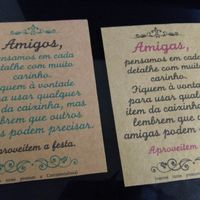 Amigos,
pensamos em cada
detalhe com muito
carinho.
Fiquem à vontade
para usar qualquer
item da caixinha, mas
lembrem que outros
amigos podem precisar.
Aproveitem a festa.
Amigas,
pensamos em cada
detalhe com muito
carinho.
Fiquem à vontade
para usar qualq
item da caixinha,
lembrem que o
amigas podem
Aproveitem